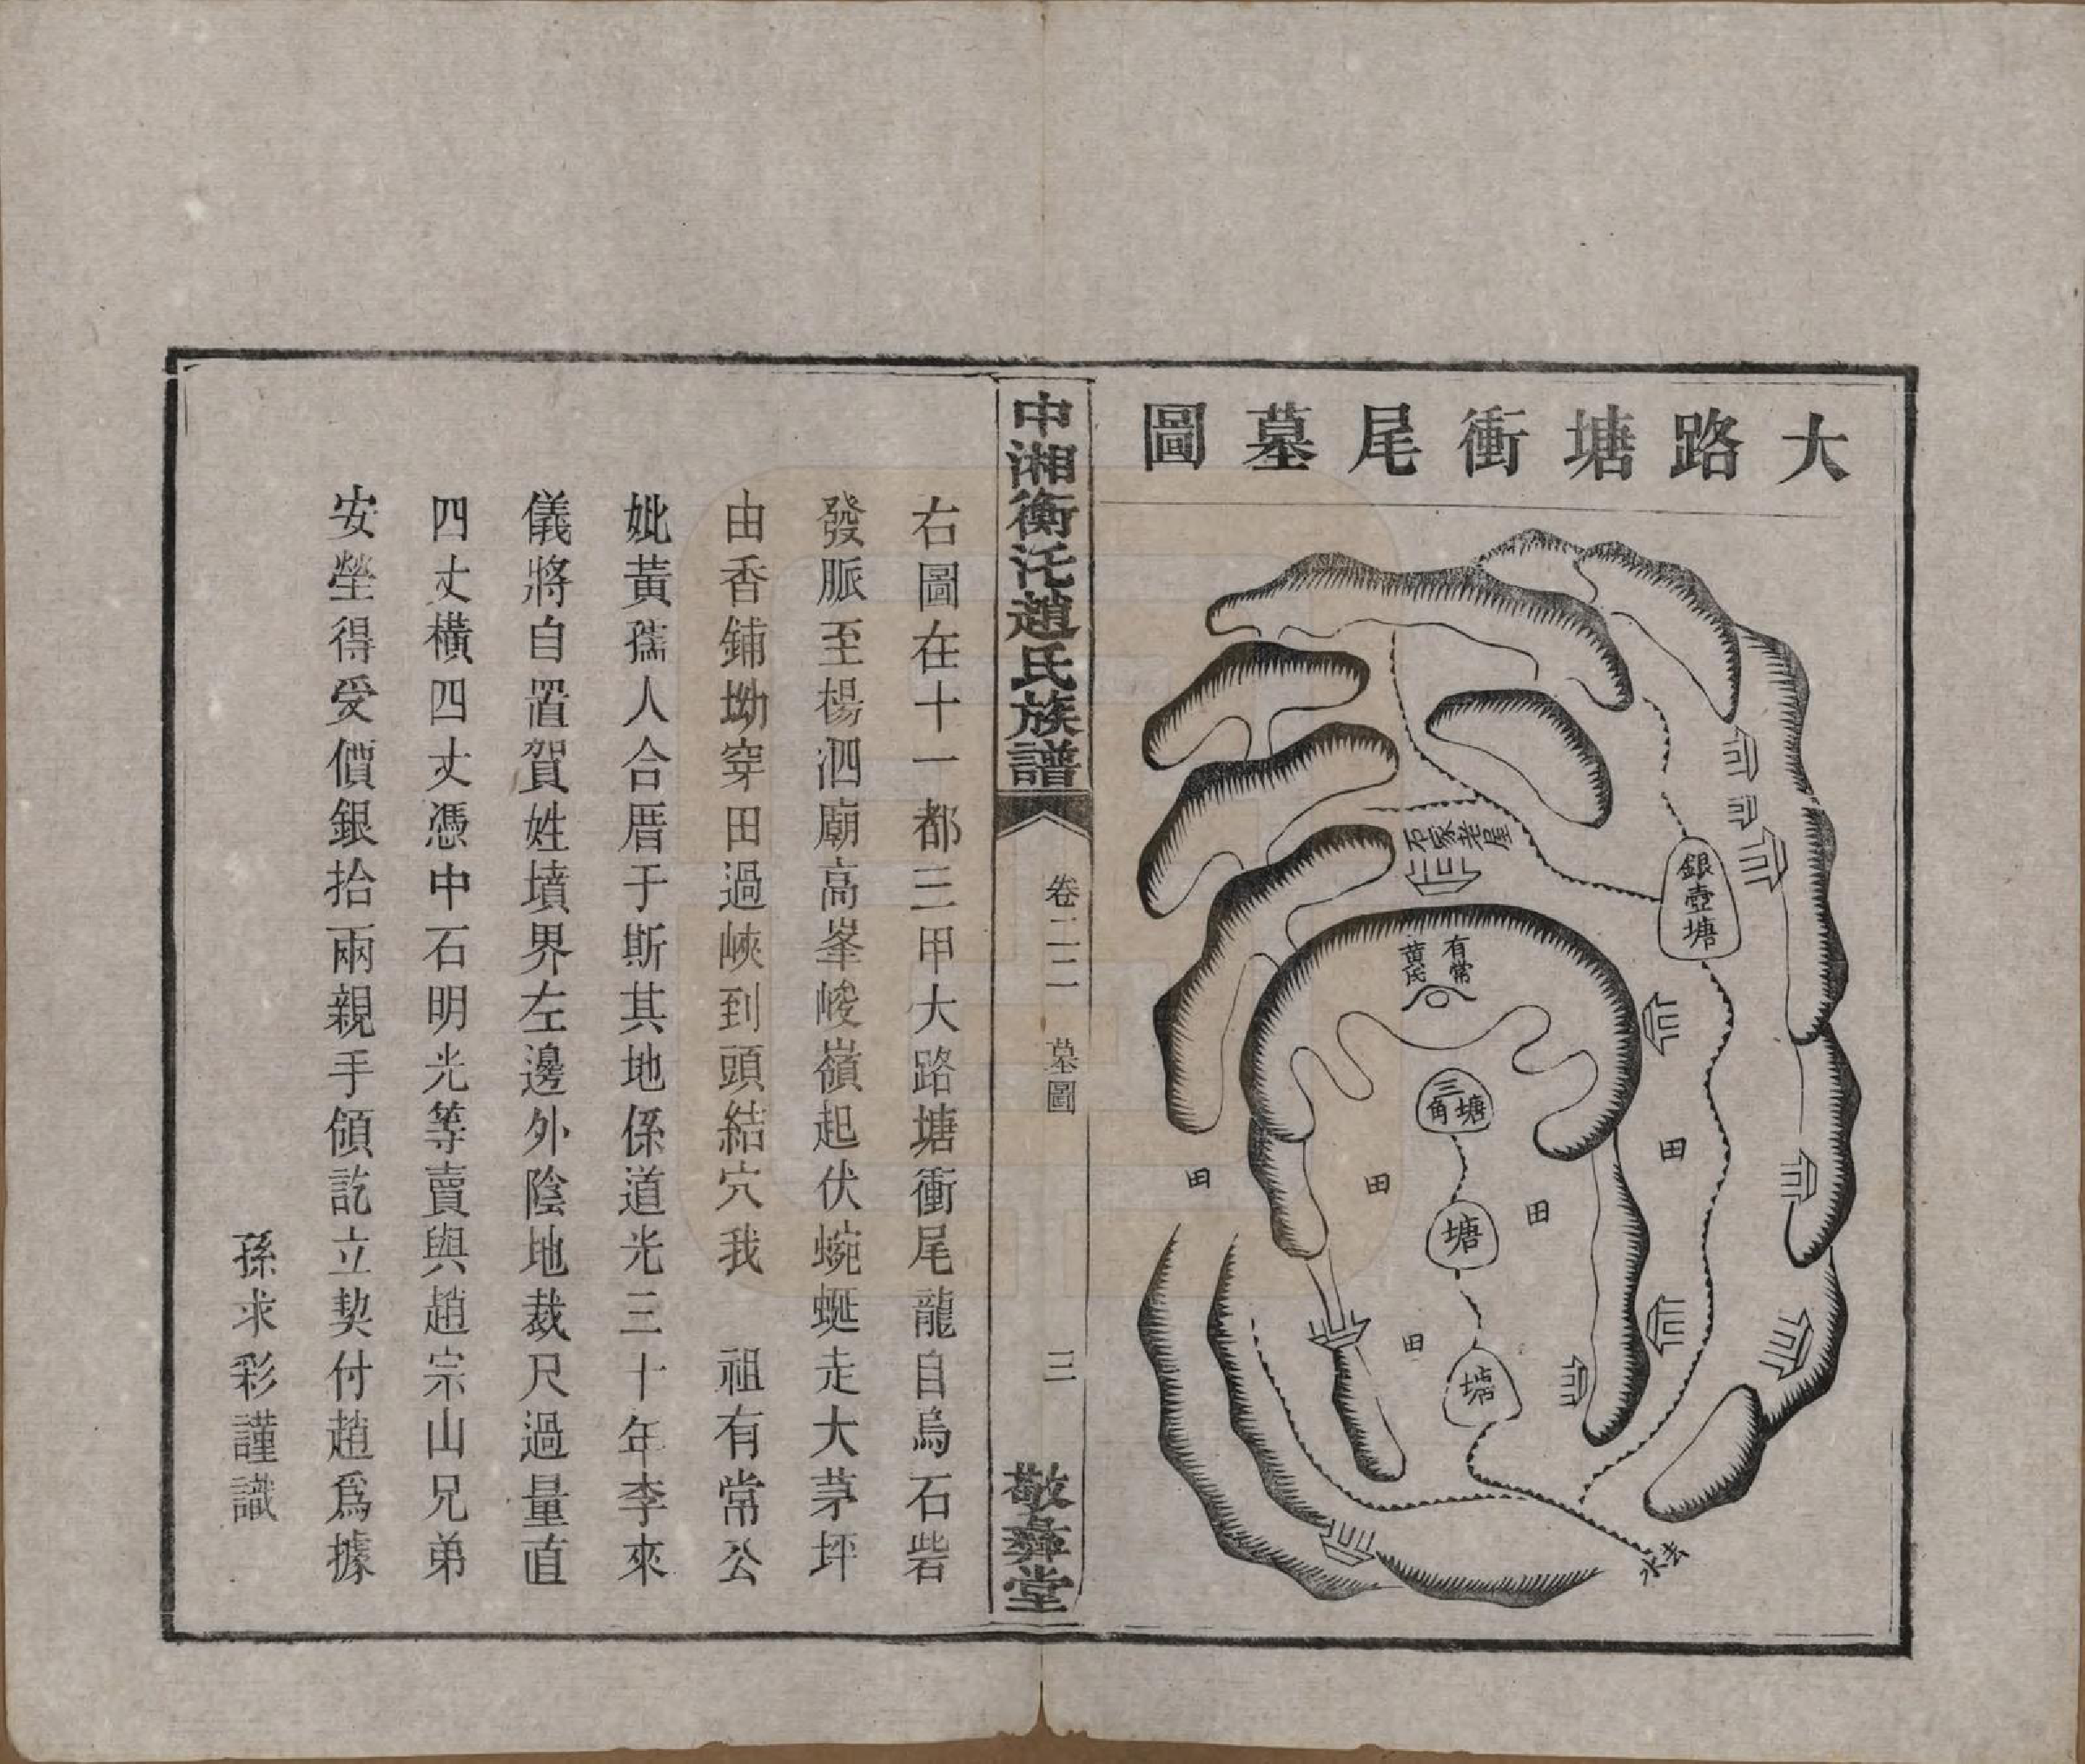 大路塘衝尾墓圖
銀壺塘
石家老屋
有常
黃氏
三角塘
田
田
田
田
塘
田
塘
水去
中湘衡汑趙氏族譜
卷二二
墓圖
三
敬彝堂
右圖在十一都三甲大路塘衝尾龍自烏石砦
發脈至楊泗廟高峯峻嶺起伏蜿蜒走大茅坪
由香鋪坳穿田過峽到頭結穴我 祖有常公
妣黃孺人合厝于斯其地係道光三十年李來
儀將自置賀姓墳界左邊外陰地裁尺過量直
四丈橫四丈憑中石明光等賣與趙宗山兄弟
安塋得受價銀拾兩親手領訖立契付趙爲據
孫求彩謹識